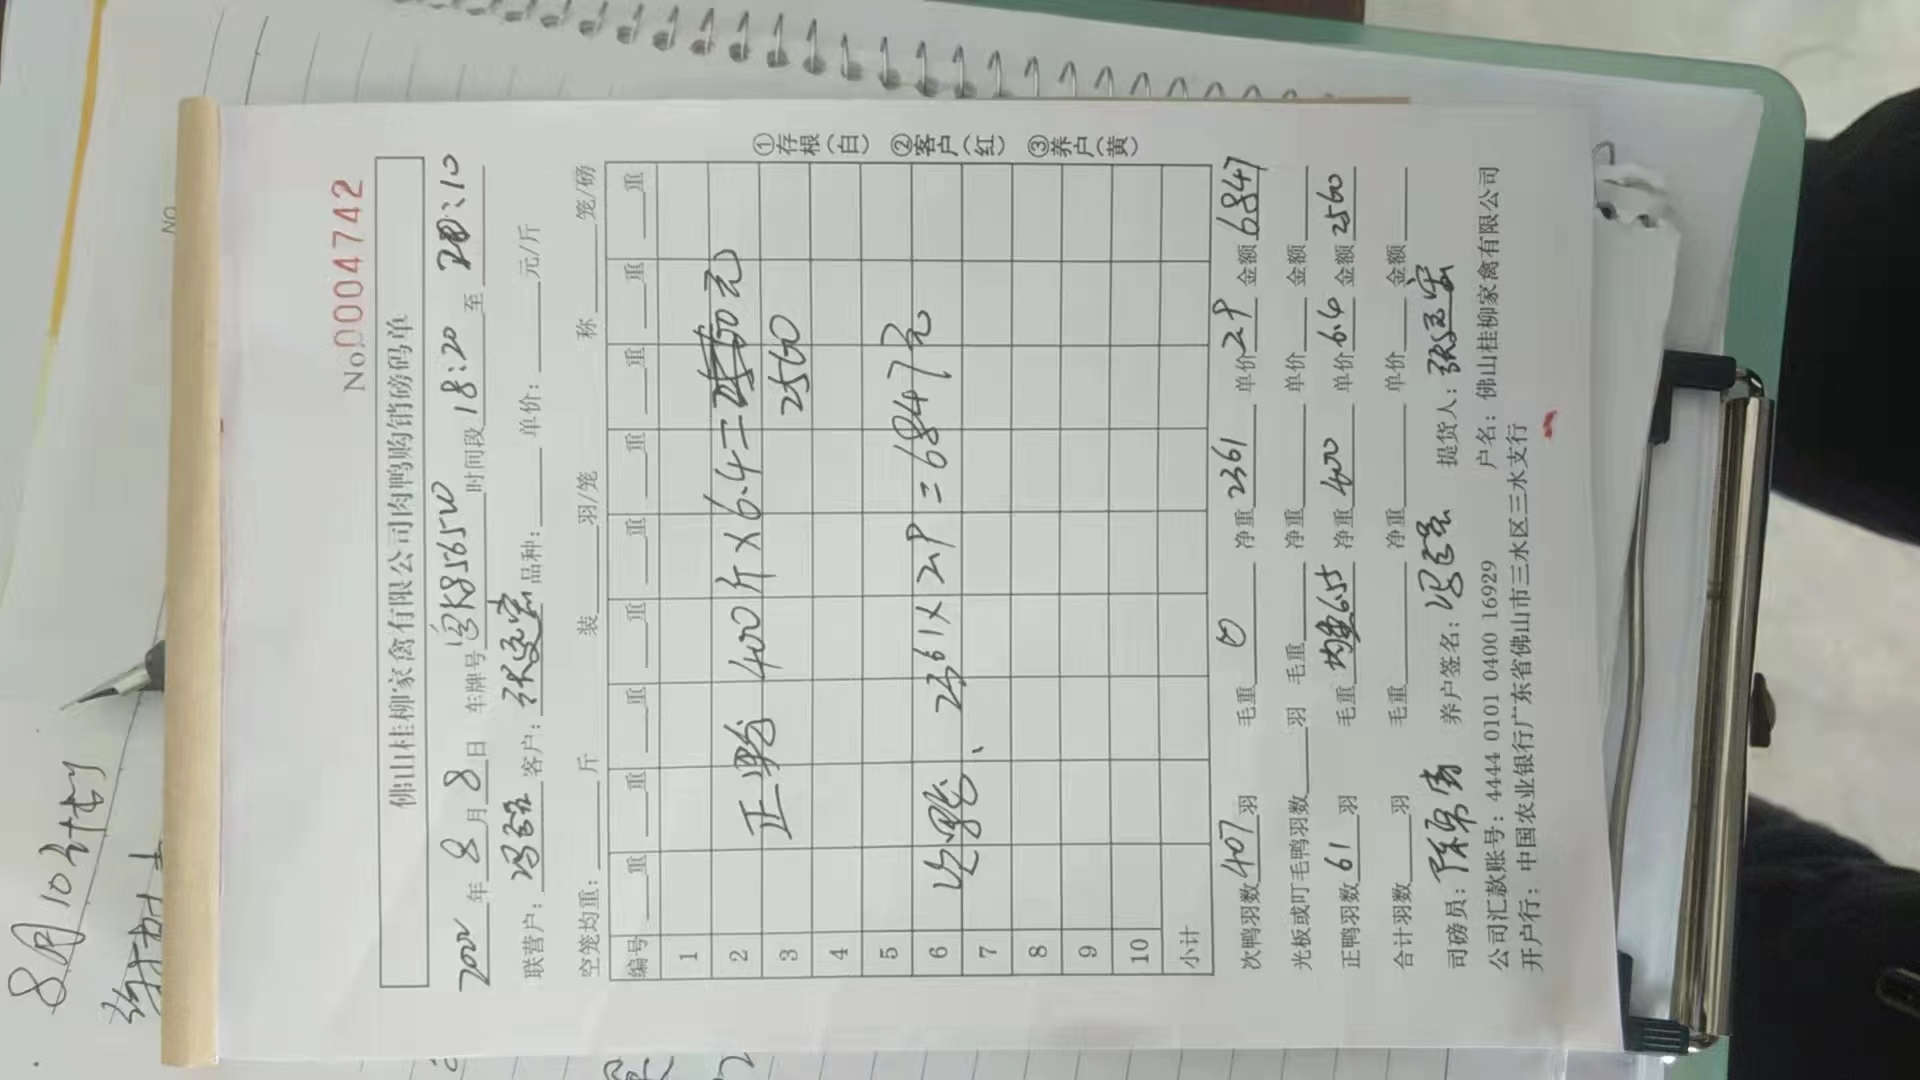 8月10号
No.0004742
佛山桂柳家禽有限公司肉鸭购销磅码单
2022年8月8日 车牌号 K8565W 时间段18:20至20:10
联营户: 客户: 品种: 单价: 元/斤
空笼均重: 斤 装 羽/笼 称 笼/磅
编号 重 重 重 重 重 重 重 重 重
1
2 正鸭 400斤×6.4=元
3 2560
4
5
6 次鸭、2361×2.9=6847元
7
8
9
10
小计
①存根(白) ②客户(红) ③养户(黄)
次鸭羽数407羽 毛重0 净重2361 单价2.9 金额6847
光板或叮毛鸭羽数 羽 毛重 净重 单价 金额
正鸭羽数61羽 毛重均重6.55 净重400 单价6.4 金额2560
合计羽数 羽 毛重 净重 单价 金额
司磅员: 养户签名: 提货人:
公司汇款账号:4444 0101 0400 16929 户名:佛山桂柳家禽有限公司
开户行:中国农业银行广东省佛山市三水区三水支行
NO